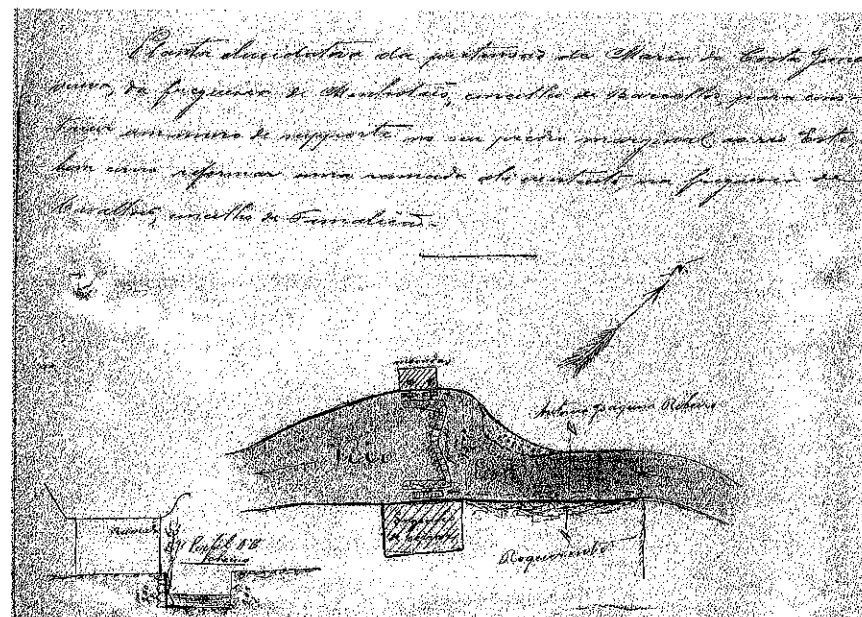 Planta elucidativa da pretensão de Maria da Costa
viuva, da freguesia de Minhotães, concelho de Barcellos, para cons-
truir um muro de supporte no seu predio marginal ao rio Este
bem como reformar uma ramada ali existente, na freguesia de
Cavallões, concelho de Famalicão.
moendas
Antonio Joaquim
Rio
Perfil AB
Requerente